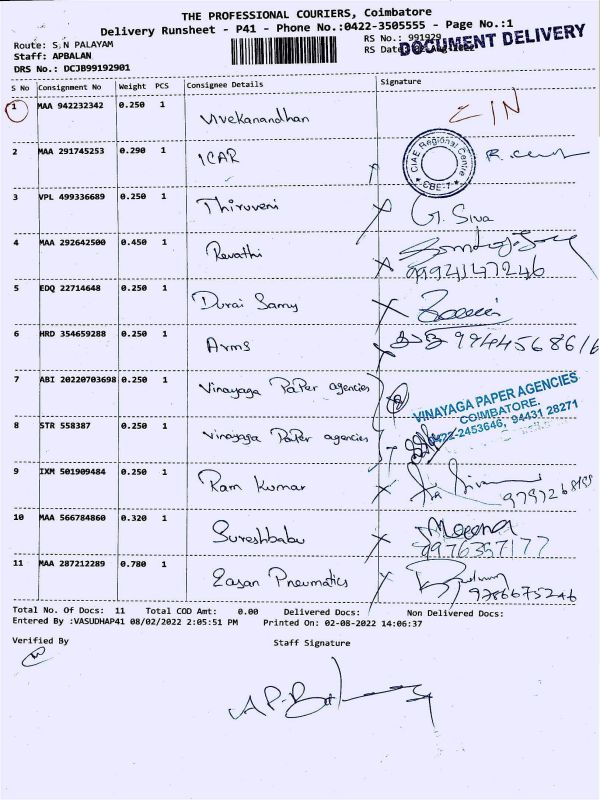 THE PROFESSIONAL COURIERS, Coimbatore
Delivery Runsheet - P41 - Phone No.:0422-3505555 - Page No.:1
Route: S,N PALAYAM
Staff: APBALAN
DRS No.: DCJB99192901
RS No.: 991929
RS Date
DOCUMENT DELIVERY
S No Consignment No Weight PCS Consignee Details Signature
1 MAA 942232342 0.250 1 Vivekanandhan
2 MAA 291745253 0.290 1 ICAR CIAE Regional Centre CBE-7
3 VPL 499336689 0.250 1 Thiruveni G. Siva
4 MAA 292642500 0.450 1 Revathi 9994147246
5 EDQ 22714648 0.250 1 Durai Samy
6 HRD 354659288 0.250 1 Arms 9944568616
7 ABI 20220703698 0.250 1 Vinayaga PaPer agencies
VINAYAGA PAPER AGENCIES
COIMBATORE.
0422-2453646, 94431 28271
8 STR 558387 0.250 1 Vinayaga PaPer agencies
9 IXM 501909484 0.250 1 Ram Kumar
10 MAA 566784860 0.320 1 Sureshbabu Meena
9976357177
11 MAA 287212289 0.780 1 Easan Pneumatics
9786675246
Total No. Of Docs: 11 Total COD Amt: 0.00 Delivered Docs: Non Delivered Docs:
Entered By :VASUDHAP41 08/02/2022 2:05:51 PM Printed On: 02-08-2022 14:06:37
Verified By Staff Signature